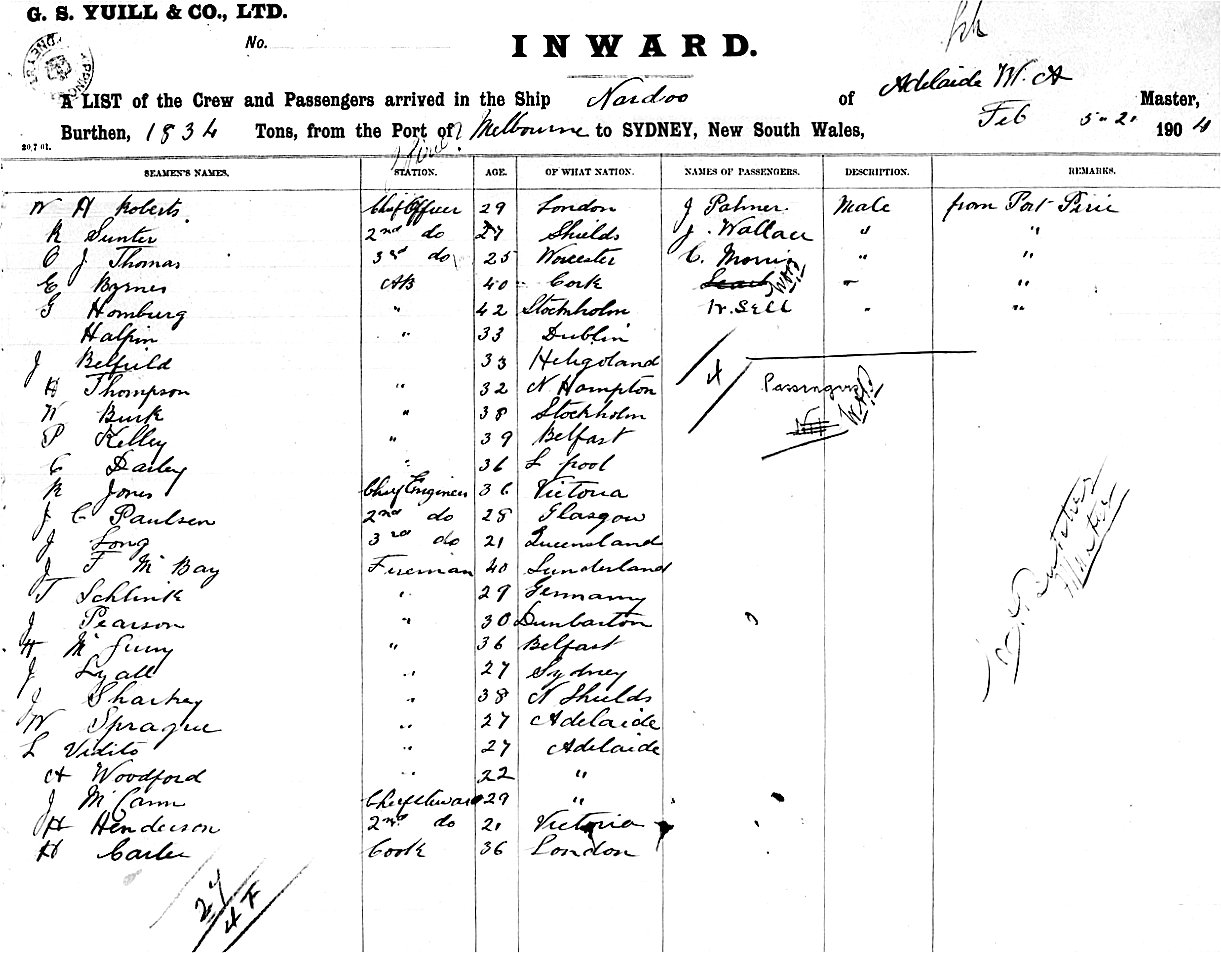 G. S. YUILL & CO., LTD.
No.
INWARD.
A LIST of the Crew and Passengers arrived in the Ship Nardoo of Adelaide W. A Master,
Burthen, 1834 Tons, from the Port of Melbourne to SYDNEY, New South Wales, Feb 5-2. 1904
20.7 01.
SEAMEN'S NAMES. STATION. AGE. OF WHAT NATION. NAMES OF PASSENGERS. DESCRIPTION. REMARKS.
W H Roberts Chief Officer 29 London J Palmer. Male from Port Pirie
R Sunter 2nd do 27 Shields J. Wallace " "
C J Thomas 3rd do 25 Worcester C. Morris " "
E Byrnes AB 40 Cork "
G Homburg " 42 Stockholm W. Sell " "
Halpin " 33 Dublin
J Belfield 33 Heligoland
H Thompson " 32 N Hampton 4 Passengers
W Burk " 38 Stockholm
P Kelley " 39 Belfast
C Darley " 36 L pool
R Jones Chief Engineer 36 Victoria
J C Paulsen 2nd do 28 Glasgow
J Long 3rd do 21 Queensland
J F McBay Fireman 40 Sunderland
T Schlink " 29 Germany
J Pearson " 30 Dunbarton
H " 36 Belfast
J Lyall " 27 Sydney
J Sharkey " 38 N Shields
W Sprague " 27 Adelaide
L Vidito " 27 Adelaide
A Woodford " 22 "
J McCann Chief Steward 29 "
H Henderson 2nd do 21 Victoria
H Carter Cook 36 London
27
4
Master